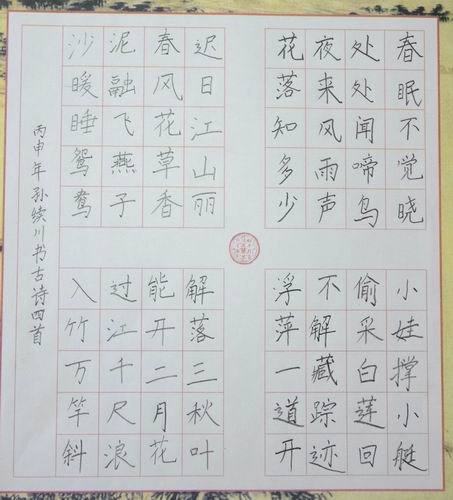 春眠不觉晓
处处闻啼鸟
夜来风雨声
花落知多少
迟日江山丽
春风花草香
泥融飞燕子
沙暖睡鸳鸯
小娃撑小艇
偷采白莲回
不解藏踪迹
浮萍一道开
解落三秋叶
能开二月花
过江千尺浪
入竹万竿斜
丙申年孙续川书古诗四首